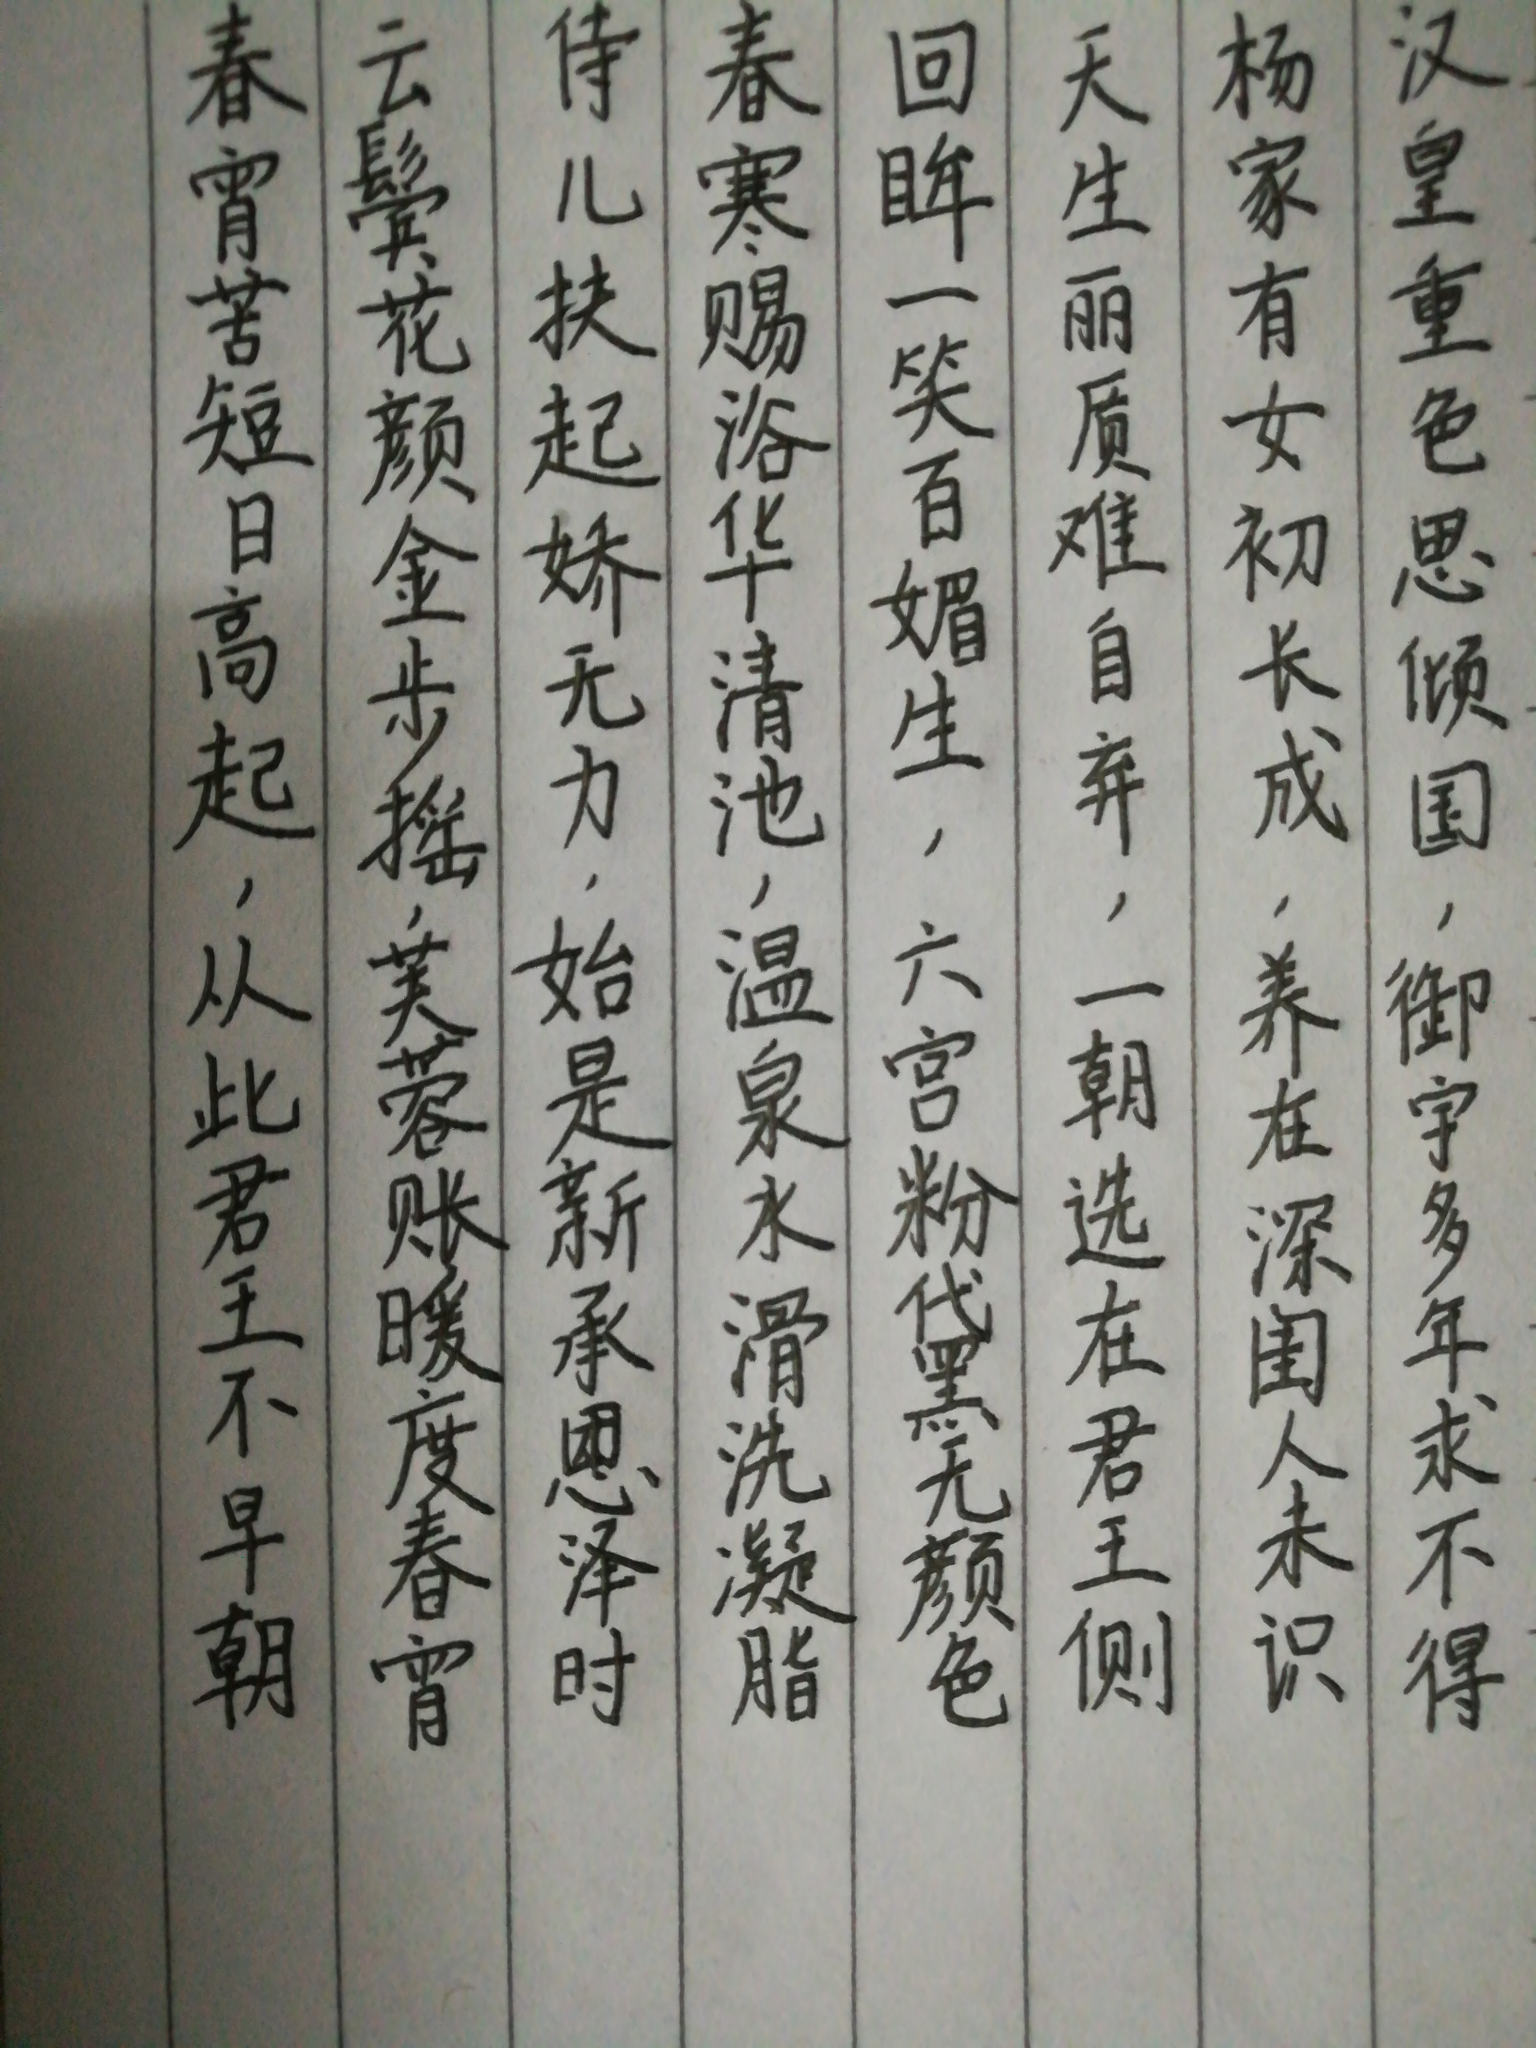 汉皇重色思倾国，御宇多年求不得
杨家有女初长成，养在深闺人未识
天生丽质难自弃，一朝选在君王侧
回眸一笑百媚生，六宫粉黛无颜色
春寒赐浴华清池，温泉水滑洗凝脂
侍儿扶起娇无力，始是新承恩泽时
云鬓花颜金步摇，芙蓉账暖度春宵
春宵苦短日高起，从此君王不早朝